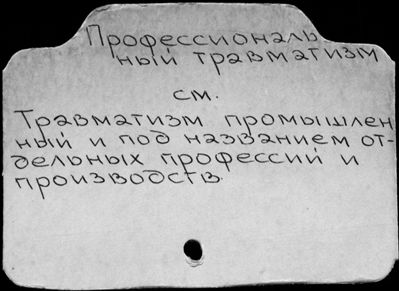 Профессиональ
ный травматизм
см.
Травматизм промышлен
ный и под названием от-
дельных профессий и
производств.